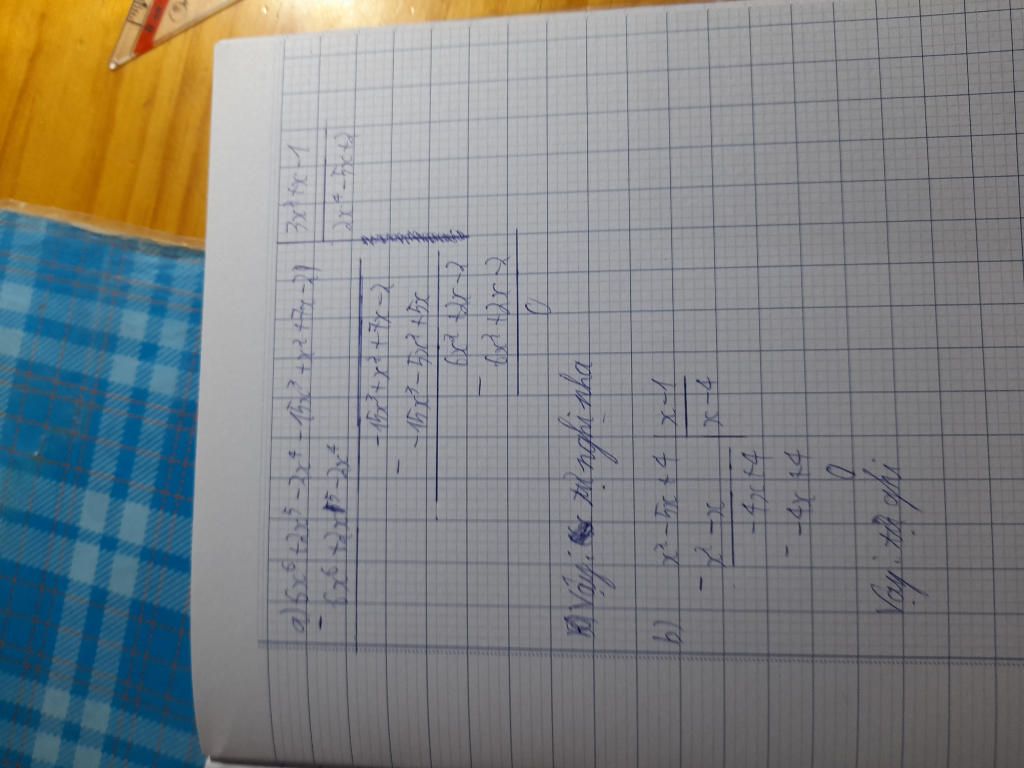 a) 6x⁶ + 2x⁵ - 2x⁴ - 15x³ + x² + 7x - 2 | 3x² + x - 1
- 6x⁶ + 2x⁵ - 2x⁴ | 2x⁴ - 5x + 2
-15x³ + x² + 7x - 2
- -15x³ - 5x² + 5x
6x² + 2x - 2
- 6x² + 2x - 2
0
Vậy: tự nghi nha
b) x² - 5x + 4 | x - 1
- x² - x | x - 4
-4x + 4
- -4x + 4
0
Vậy: